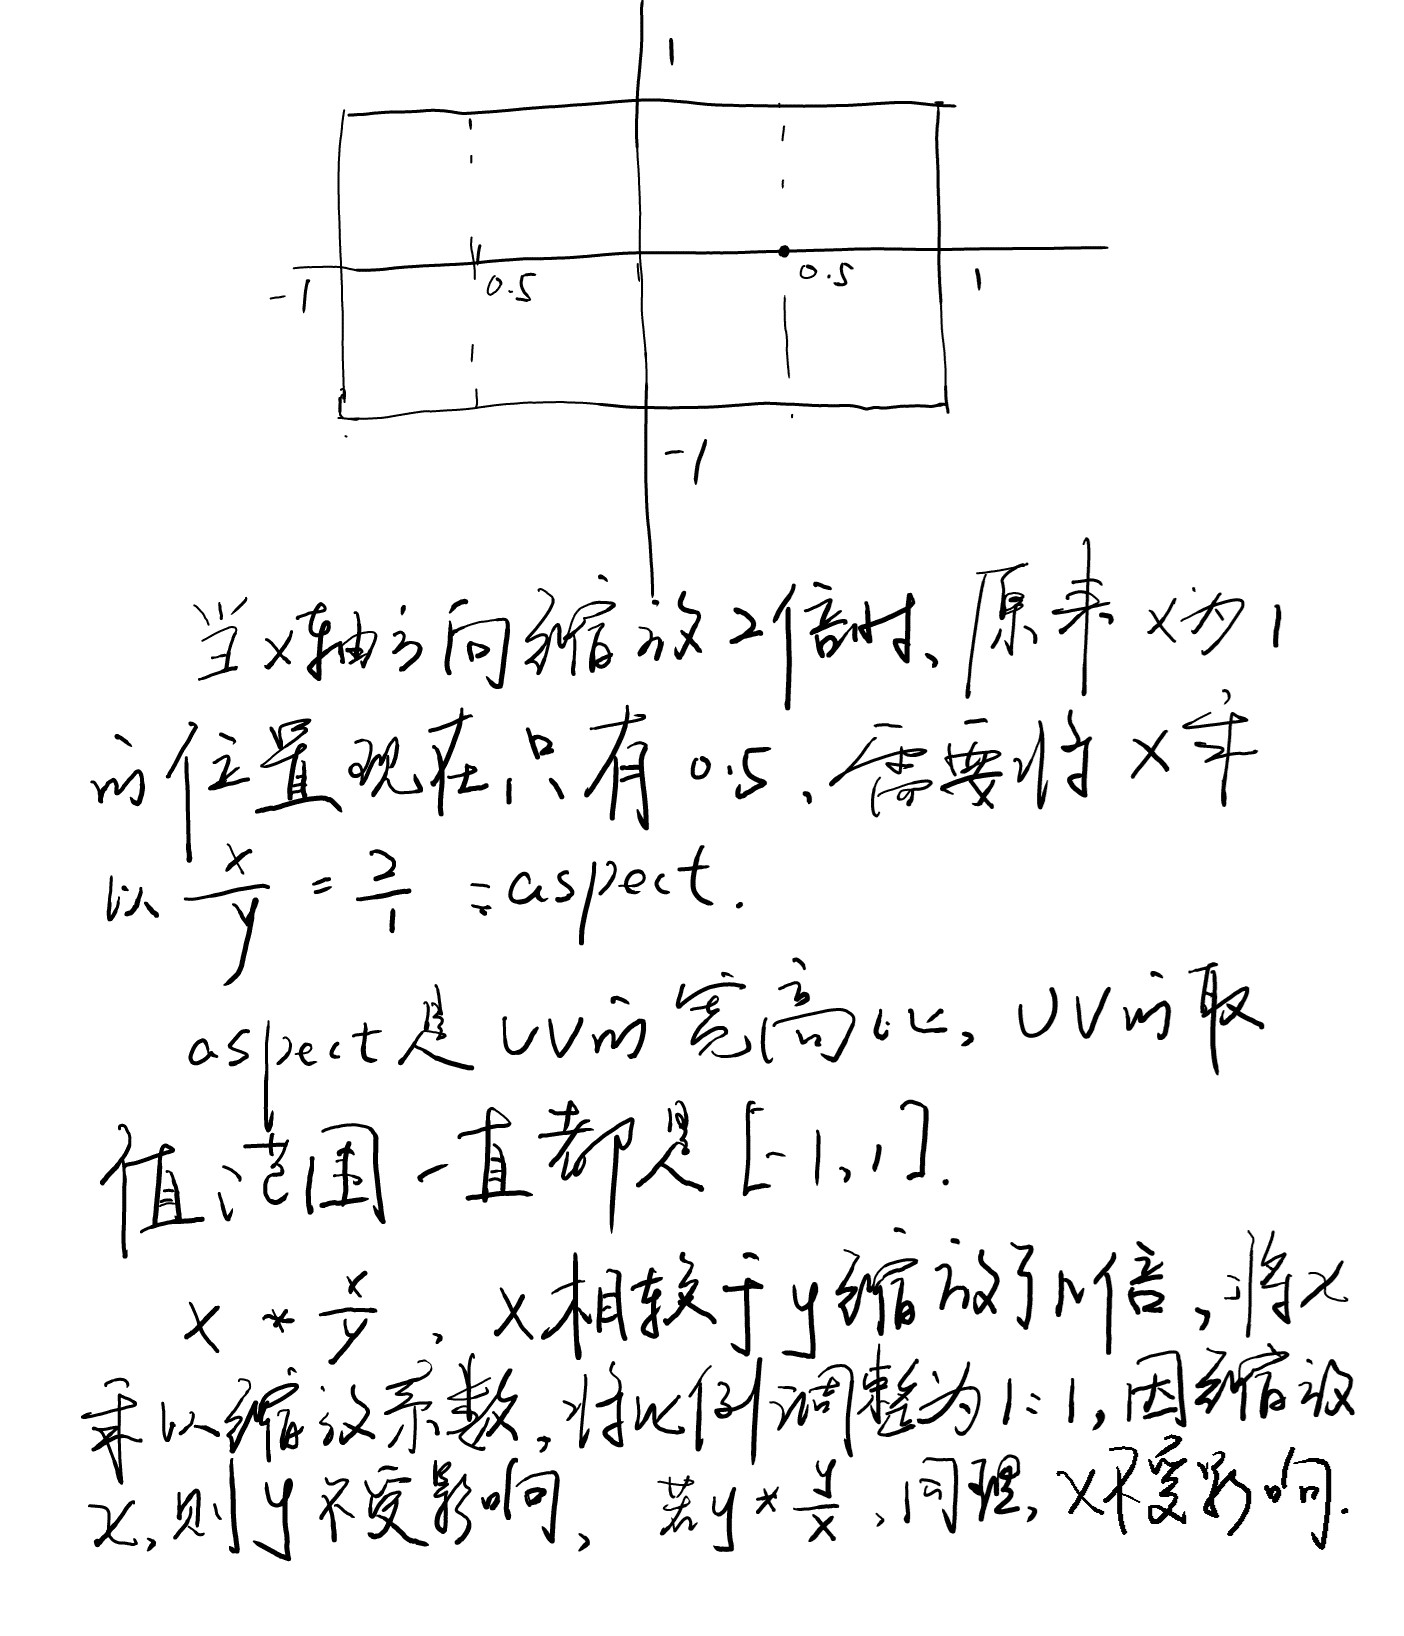 1
-1
0.5
0.5
1
-1
当x轴方向缩放2倍时、原来x为1
的位置现在只有0.5、需要将x乘
以 x/y = 2/1 = aspect.
aspect是UV的宽高比, UV的取
值范围一直都是[-1,1].
x * x/y 、x相较于y缩放了n倍,将x
乘以缩放系数,将比例调整为1:1,因缩放
x,则y不受影响, 若y * y/x 、同理,x不受影响.